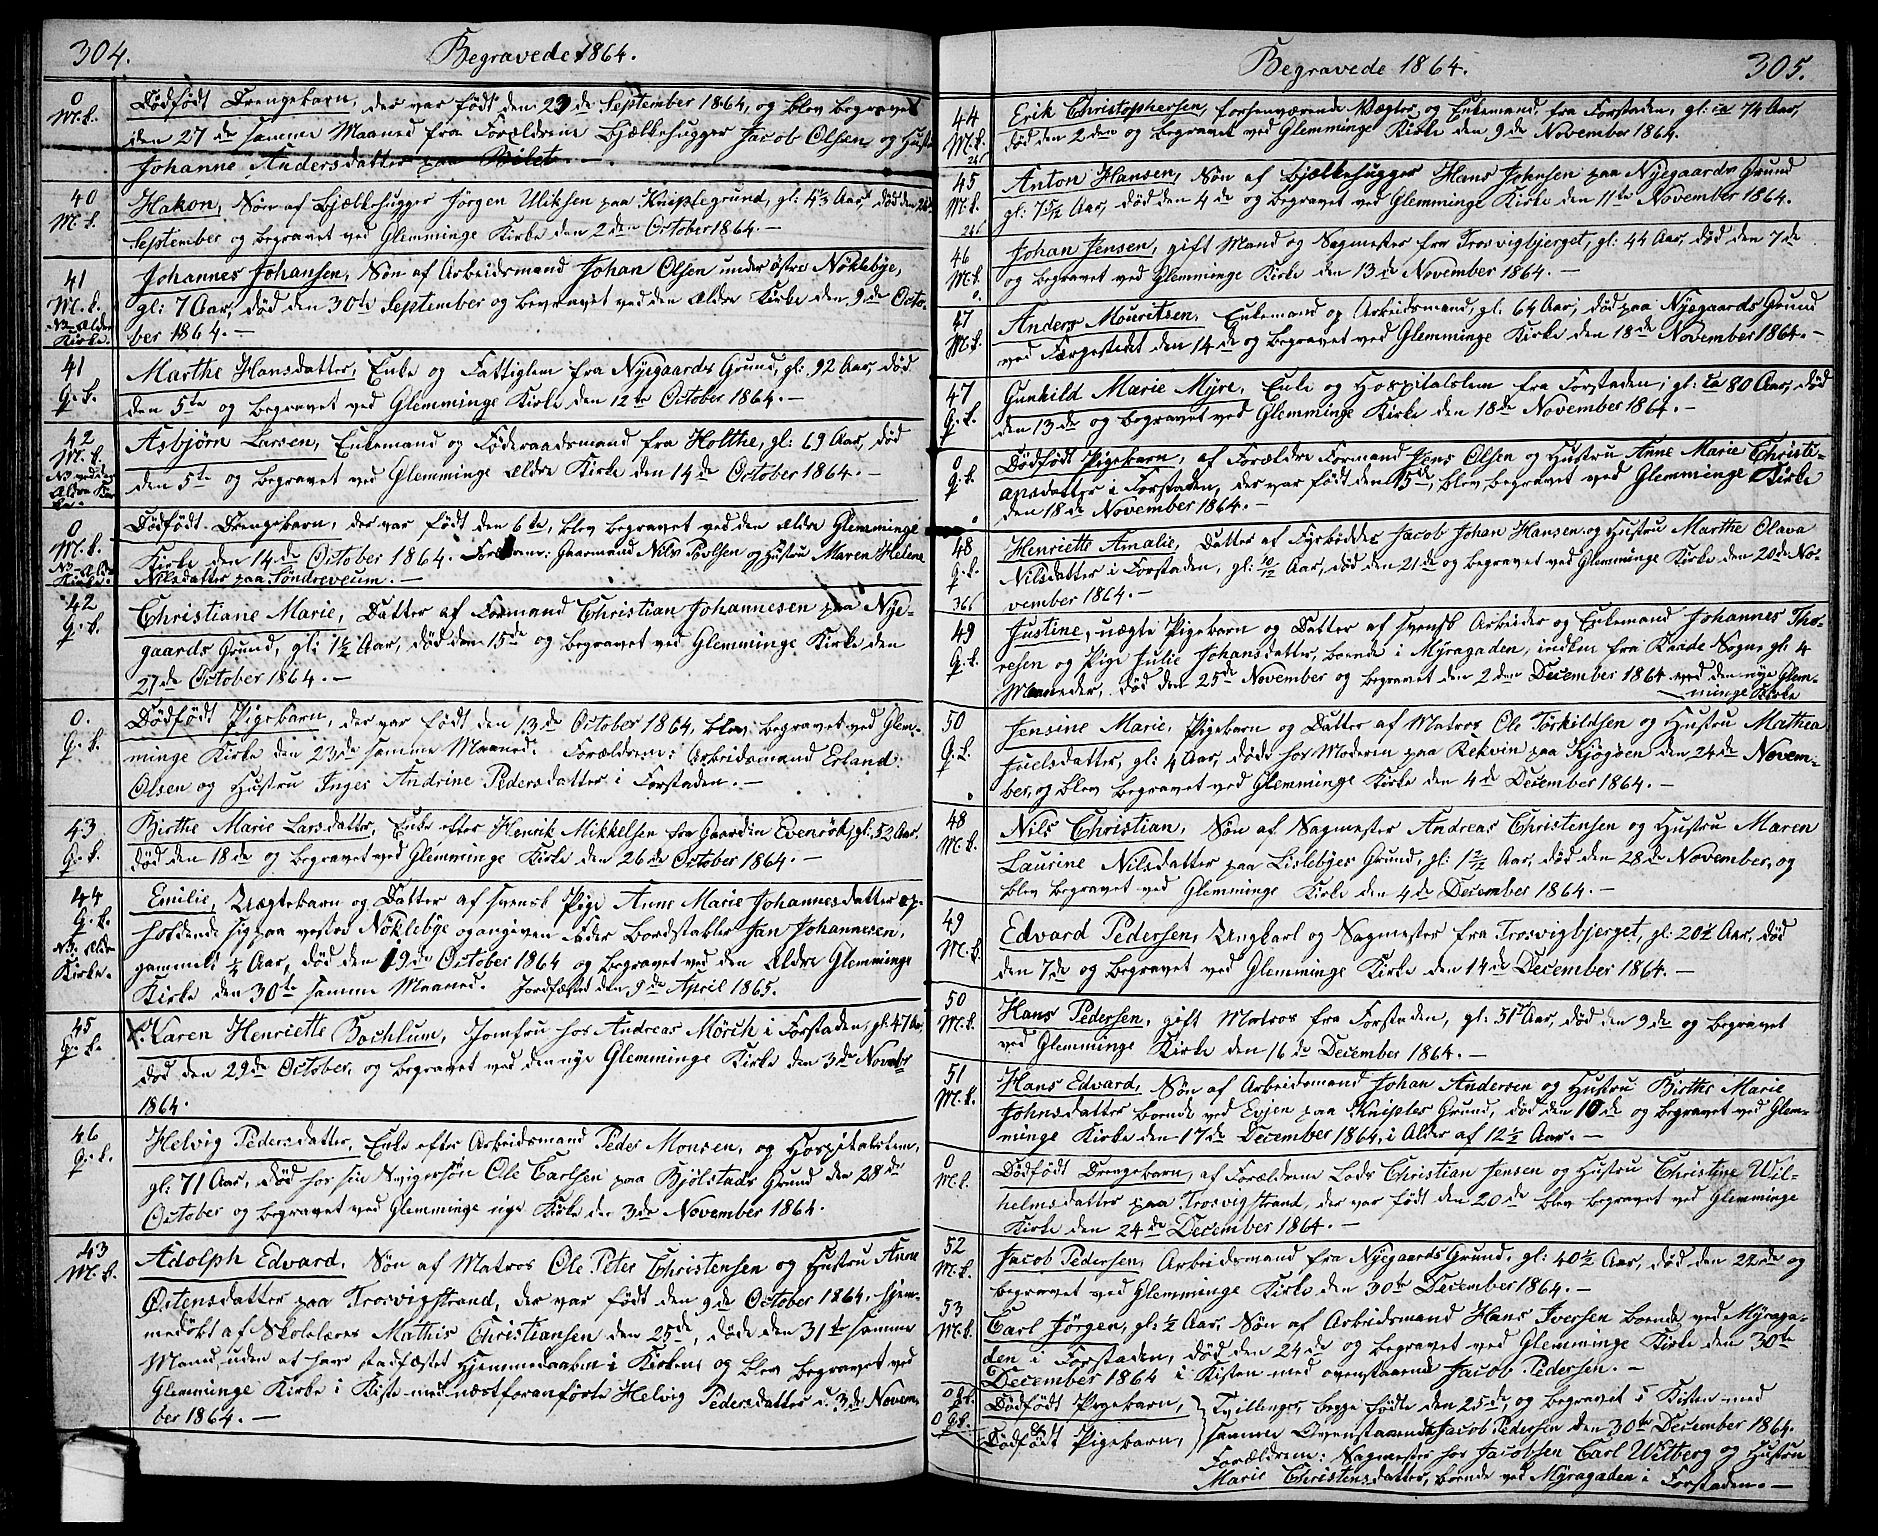 304.
Begravede 1864.
0
M.k.
Dödfödt Drengebarn, der var födt den 23de September 1864, og blev begravet
den 27de samme Maaned fra Forældrene Bjælkehugger Jacob Olsen og Hustru
Johanne Andersdatter paa Bilet. —
40
M.k.
Hakon, Sön af Bjælkehugger Jörgen Ulriksen paa Kniplegrund, gl: 4½ Aar, död den
September og begravet ved Glemminge Kirke den 2den October 1864. —
41
M.k.
NB. Ældre
Kirke.
Johannes Johansen, Sön af Arbeidsmand Johan Olsen under östre Nöklebye,
gl: 7 Aar, död den 30te September og bevravet ved den ældre Kirke den 9de Octo-
ber 1864. —
41
Q.k.
Marthe Hansdatter, Enke og Fattiglem fra Nyegaards Grund, gl: 92 Aar, död
den 5te og begravet ved Glemminge Kirke den 12te October 1864. —
42
M.k.
NB ved den
Ældre Kir
ke.
Asbjörn Larsen, Enkemand og Föderaadsmand fra Holthe, gl: 69 Aar, död
den 5te og begravet ved Glemminge ældre Kirke den 14de October 1864. —
0
M.k.
NB. Ældre
Kirke.
Dödfödt Drengebarn, der var födt den 6te, blev begravet ved den ældre Glemminge
Kirke den 14de October 1864. Forældrene: Gaarmand Nils Povlsen og Hustru Maren Helene
Nilsdatter paa Söndreveum. —
42
Q.k.
Christiane Marie, Datter af Formand Christian Johannesen paa Nye-
gaards Grund, gl: 1½ Aar, död den 15de og begravet ved Glemminge Kirke den
27de October 1864. —
0.
Q.k.
Dödfödt Pigebarn, der var födt den 13de October 1864, blev begravet ved Glem-
minge Kirke den 23de samme Maaned. Forældrene: Arbeidsmand Erland
Olsen og Hustru Inger Andrine Pedersdatter i Forstaden. —
43
Q.k.
Birthe Marie Larsdatter, Enke efter Henrik Mikkelsen fra Gaarden Evenrök, gl: 52 Aar,
död den 18de og begravet ved Glemminge Kirke den 26de October 1864. —
44
Q.k.
NB. Ældre
Kirke.
Emilie, Uægtebarn og Datter af svensk Pige Anne Marie Johannesdatter op-
holdende sig paa vestre Nöklebye og angiven Fader Bordstabler Jan Johannesen,
gammel ¼ Aar, död den 19de October 1864 og begravet ved den Ældre Glemminge
Kirke den 30te samme Maaned. Jordfæstet den 9de April 1865.
45
Q.k.
Karen Henriette Bachlum, Jomfru hos Andreas Mörch i Forstaden, gl: 47 Aar,
död den 29de October, og begravet ved den nye Glemminge Kirke den 3de Novbr
1864.
46
Q.k.
Helvig Pedersdatter, Enke efter Arbeidsmand Peder Monsen, og Hospitalslem,
gl: 71 Aar, död hos sin Svigersön Ole Carlsen paa Bjölstads Grund den 28de
October og begravet ved Glemminge nye Kirke den 3de November 1864.
43
M.k.
Adolph Edvard, Sön af Matros Ole Peter Christensen og Hustru Anne
Östensdatter paa Trosvigstrand, der var födt den 9de October 1864, hjem-
medöbt af Skolelærer Mathis Christiansen den 25de, döde den 31te samme
Maaned, uden at have stadfæstet Hjemmedaaben i Kirken og blev begravet ved
Glemminge Kirke i Kiste med næstforanförte Helvig Pedersdatter d. 3de Novem-
ber 1864. —
Begravede 1864.
305.
44
M.k.
Erik Christophersen, forhenværende Vægter og Enkemand, fra Forstaden, gl: ca 74 Aar,
död den 2den og begravet ved Glemminge Kirke den 9de November 1864.
45
M.k.
Anton Hansen, Sön af Bjælkehugger Hans Johnsen paa Nyegaards Grund
gl: 7 5/12 Aar, död den 4de og begravet ved Glemminge Kirke den 11te November 1864.
46
M.k.
Johan Jensen, gift Mand og Sagmester fra Trosvigbjerget, gl: 44 Aar, död den 7de
og begravet ved Glemminge Kirke den 13de November 1864. —
47
M.k.
Anders Mouritsen, Enkemand og Arbeidsmand, gl: 64 Aar, död paa Nyegaards Grund
ved Færgestedet den 14de og begravet ved Glemminge Kirke den 18de November 1864. —
47
Q.k.
Gunhild Marie Myre, Enke og Hospitalslem fra Forstaden, gl: ca 80 Aar, död
den 13de og begravet ved Glemminge Kirke den 18de November 1864. —
0
Q.k.
Dödfödt Pigebarn, af Forældre Formand Jens Olsen og Hustru Anne Marie Christi-
ansdatter i Forstaden, der var födt den 15de, blev begravet ved Glemminge Kirke
den 18de November 1864. —
48
Q.k.
Henriette Amalie, Datter af Fyrböder Jacob Johan Hansen og Hustru Marthe Olava
Nilsdatter i Forstaden, gl: 10/12 Aar, död den 21de og begravet ved Glemminge Kirke den 20de No-
vember 1864. —
49
Q.k.
Justine, uægte Pigebarn og Datter af svensk Arbeider og Enkemand Johannes Tho-
resen og Pige Julie Johansdatter, boende i Myragaden, indkom fra Raade Sogn, gl: 4
Maaneder, död den 25de November og begravet den 2den December 1864 ved den nye Glem-
minge Kirke
50
Q.k.
Jensine Marie, Pigebarn og Datter af Matros Ole Torkildsen og Hustru Mathea
Juelsdatter, gl: 4 Aar, döde hos Moderen paa Rekvin paa Kjøgöen den 24de Novem-
ber, og blev begravet ved Glemminge Kirke den 4de December 1864. —
48
M.k.
Nils Christian, Sön af Sagmester Andreas Christensen og Hustru Maren
Laurine Nilsdatter paa Lislebyes Grund, gl: 1 2/12 Aar, död den 28de November, og
blev begravet ved Glemminge Kirke den 4de December 1864. —
49
M.k.
Edvard Pedersen, Ungkarl og Sagmester fra Trosvigbjerget, gl: 20½ Aar, död
den 7de og begravet ved Glemminge Kirke den 14de December 1864. —
50
M.k.
Hans Pedersen, gift Matros fra Forstaden, gl: 31 Aar, död den 9de og begravet
ved Glemminge Kirke den 16de December 1864. —
51
M.k.
Hans Edvard, Sön af Arbeidsmand Johan Andersen og Hustru Birthe Marie
Johnsdatter boende ved Evjen paa Kniples Grund, död den 10de og begravet ved Glem-
minge Kirke den 17de December 1864, i Alder af 12½ Aar. —
0
M.k.
Dödfödt Drengebarn, af Forældrene Lods Christian Jensen og Hustru Christine Wil-
helmsdatter paa Trosvigstrand, der var födt den 20de blev begravet ved Glemminge
Kirke den 24de December 1864. —
52
M.k.
Jacob Pedersen, Arbeidsmand fra Nyegaards Grund, gl: 40½ Aar, död den 22de og
begravet ved Glemminge Kirke den 30te December 1864. —
53
M.k.
Carl Jörgen, gl: ½ Aar, Sön af Arbeidsmand Hans Iversen boende ved Myraga-
den i Forstaden, död den 24de og begravet ved Glemminge Kirke den 30te
December 1864 i Kisten med ovenstaaende Jacob Pedersen. —
0 Q.k.
0 Q.k.
Dödfödt Pigebarn,
Dödfödt Pigebarn,
Tvillinger, begge födte den 25de, og begravet i Kisten med
samme Ovenstaaende Jacob Pedersen den 30te December 1864.
Forældrene: Sagmester hos Jacobsen Carl Witberg og Hustru
Marie Christensdatter, boende ved Myragaden i Forstaden. —